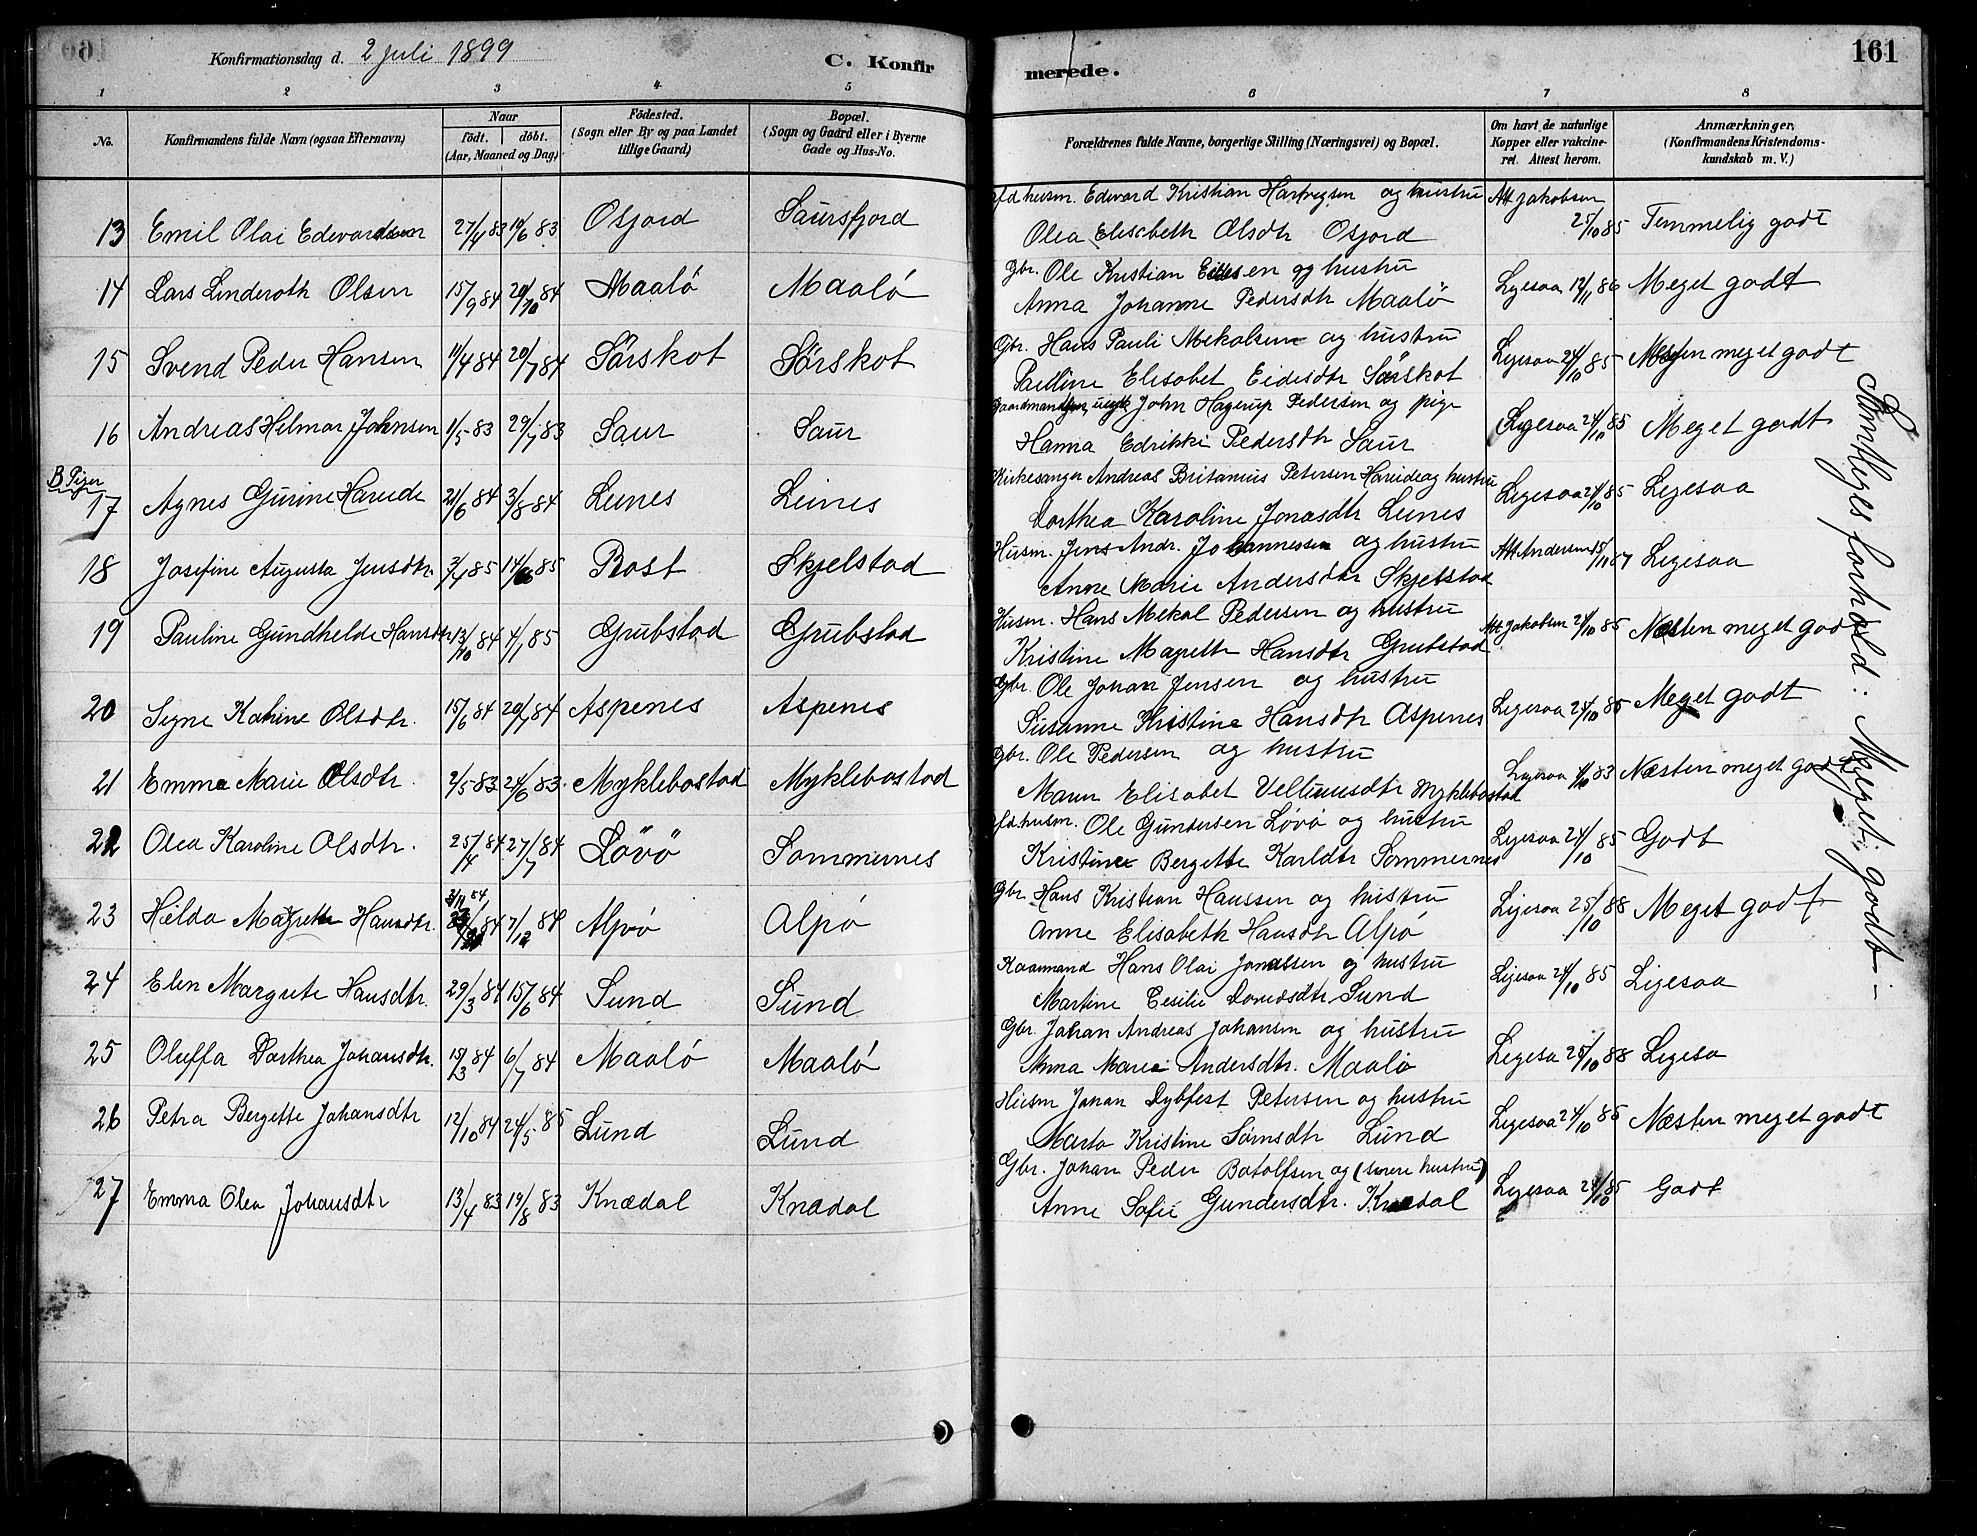 161
Konfirmationsdag d. 2 juli 1899
C. Konfirmerede.
1 2 3 4 5 6 7 8
No. | Konfirmandens fulde Navn (ogsaa Efternavn) | Naar födt. döbt. (Aar, Maaned og Dag) | Födested. (Sogn eller By og paa Landet tillige Gaard) | Bopæl. (Sogn og Gaard eller i Byerne Gade og Hus-No. | Forældrenes fulde Navne, borgerlige Stilling (Næringsvei) og Bopæl. | Om havt de naturlige Kopper eller vakcineret. Attest herom. | Anmærkninger. (Konfirmandens Kristendomskundskab m. V.)
fd husm. Edevard Kristian Hartvigsen og hustru
13 Emil Olai Edevardsen 27/4 83 10/6 83 Osfjord Saursfjord Olea Elisabeth Olsdtr Osfjord Att Jakobsen 25/10 85 Temmelig godt
Gbr. Ole Kristian Eidesen og hustru
14 Lars Linderoth Olsen 15/9 84 20/10 84 Maalö Maalö Anna Johanne Pedersdtr Maalö Ligesaa 12/11 86 Meget godt
Gbr. Hans Pauli Mekalsen og hustru
15 Svend Peder Hansen 11/4 84 20/7 84 Sörskot Sörskot Pauline Elisabet Eidesdtr Sörskot Ligesaa 24/10 85 Næsten meget godt
Gaardmandssøn, ungk John Hagerup Pedersen og pige
16 Andreas Helmar Johnsen 1/5 83 29/7 83 Saur Saur Hanna Edrikke Pedersdtr Saur Ligesaa 24/10 85 Meget godt
B Piger
Kirkesanger Andreas Britanius Petersen Hareide og hustru
17 Agnes Gurine Hareide 21/6 84 3/8 84 Leines Leines Dorthea Karoline Jonasdtr Leines Ligesaa 24/10 85 Ligesaa
Husm. Jens Andr. Johannessen og hustru
18 Josefine Augusta Jensdtr. 3/4 85 14/6 85 Röst Skjelstad Anne Marie Andersdtr Skjelstad Att Andersen 15/11 87 Ligesaa
Husm. Hans Mekal Pedersen og hustru
19 Pauline Gundhelde Hansdtr 13/10 84 4/1 85 Grubstad Grubstad Kristine Magrethe Hansdtr Grubstad Att Jakobsen 24/10 85 Næsten meget godt
Gbr. Ole Johan Jensen og hustru
20 Signe Katrine Olsdtr. 15/6 84 20/7 84 Aspenes Aspenes Susanne Kristine Hansdtr Aspenes Ligesaa 24/10 85 Meget godt
Gbr. Ole Pedersen og hustru
21 Emma Marie Olsdtr. 2/5 83 24/6 83 Myklebostad Myklebostad Maren Elisabet Myklebostad Ligesaa 83 Næsten meget godt
fd. husm. Ole Gundersen Lövö og hustru
22 Olea Karoline Olsdtr. 25/4 84 27/7 84 Lövö Sommernes Kristine Bergette Karldtr Sommernes Ligesaa 24/10 85 Godt
Gbr. Hans Kristian Hansen og hustru
23 Hilda Magrethe Hansdtr. 84 7/12 84 Alpö Alpö Anne Elisabeth Hansdtr Alpö Ligesaa 25/10 88 Meget godt
Kaarmand Hans Olai Jonassen og hustru
24 Elen Margrete Hansdtr. 29/3 84 15/6 84 Sund Sund Martine Cesilie Davidsdtr Sund Ligesaa 24/10 85 Ligesaa
Gbr. Johan Andreas Johansen og hustru
25 Oluffa Dorthea Johansdtr. 15/3 84 6/7 84 Maalö Maalö Anna Marie Andersdtr. Maalö Ligesa 25/10 88 Ligesa
Husm Johan Dybfest Petersen og hustru
26 Petra Bergette Johansdtr 12/10 84 24/5 85 Lund Lund Marta Kristine Sörnsdtr Lund Ligesaa 24/10 85 Næsten meget godt
Gbr. Johan Peder Botolfsen og (senere hustru)
27 Emma Olea Johansdtr 13/4 83 19/8 83 Knædal Knædal Anne Sofie Gundersdtr. Knædal Ligesaa 24/10 85 Godt
Samtliges forhold: Meget godt